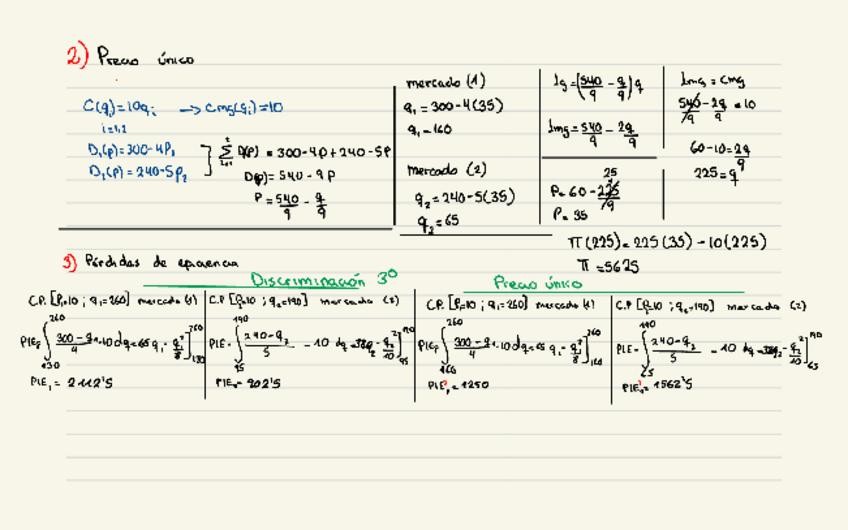 2) Precio único
C(qi)=10qi → Cmg(qi)=10
i=1,2
D1(p)=300-4P1
D1(p)=240-5P2
Σ D(P) = 300-4P+240-5P
D(p)= 540-9P
P= 540/9 - q/9
mercado (1)
q1=300-4(35)
q1=160
mercado (2)
q2=240-5(35)
q2=65
Ig=(540/9 - q/9)q
Img=540/9 - 2q/9
25
P=60-225/9
P=35
Img=Cmg
540-2q/9=10
60-10=2q/9
225=q
π(225)=225(35)-10(225)
π=5625
3) Pérdidas de eficiencia
Discriminación 3º
Precio único
C.P. [P1=10 ; q1=260] mercado (1)
260
∫ 300-q1/4 -10 dq=65q1-q1²/8]
130
PIE1=2112'5
C.P [P2=10 ; q2=190] mercado (2)
190
PIE= ∫ 240-q2/5 -10 dq=38q2-q2²/10]
95
PIE2=902'5
C.P. [P1=10 ; q1=260] mercado (1)
260
∫ 300-q1/4 -10 dq=65q1-q1²/8]
160
PIE1=1250
C.P [P2=10 ; q2=190] mercado (2)
190
PIE= ∫ 240-q2/5 -10 dq=38q2-q2²/10]
65
PIE2=1562'5